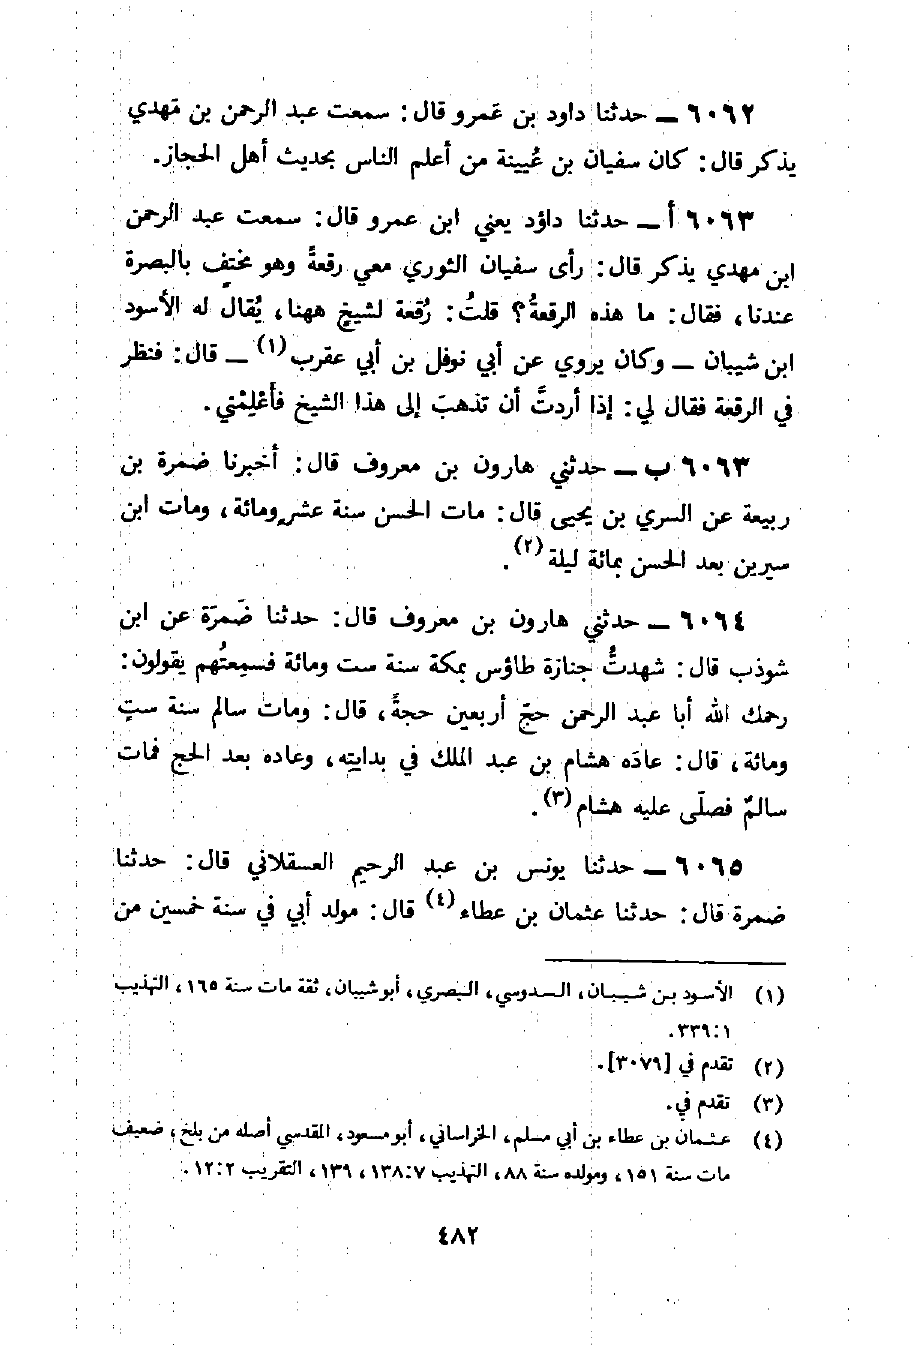 ٦٠٦٢ ــ حدثنا داود بن عَمرو قال: سمعت عبد الرحمن بن مَهدي
يذكر قال: كان سفيان بن عُيينة من أعلم الناس بحديث أهل الحجاز.
٦٠٦٣ أ ــ حدثنا داؤد يعني ابن عمرو قال: سمعت عبد الرحمن
ابن مهدي يذكر قال: رأى سفيان الثوري معي رقعةً وهو مختفٍ بالبصرة
عندنا، فقال: ما هذه الرقعةُ؟ قلتُ: رُقعة لشيخٍ ههنا، يُقال له الأسود
ابن شيبان ــ وكان يروي عن أبي نوفل بن أبي عقرب(١) ــ قال: فنظر
في الرقعة فقال لي: إذا أردتَّ أن تذهبَ إلى هذا الشيخ فأَعْلِمْني.
٦٠٦٣ ب ــ حدثني هارون بن معروف قال: أخبرنا ضمرة بن
ربيعة عن السري بن يحيى قال: مات الحسن سنة عشر ومائة، ومات ابن
سيرين بعد الحسن بمائة ليلة(٢).
٦٠٦٤ ــ حدثني هارون بن معروف قال: حدثنا ضَمرَة عن ابن
شوذب قال: شهدتُّ جنازة طاؤس بمكة سنة ست ومائة فسمِعتُهم يقولون:
رحمك الله أبا عبد الرحمن حجّ أربعين حجةً، قال: ومات سالم سنة ستٍ
ومائة، قال: عادَه هشام بن عبد الملك في بدايته، وعاده بعد الحج فمات
سالمٌ فصلّى عليه هشام(٣).
٦٠٦٥ ــ حدثنا يونس بن عبد الرحيم العسقلاني قال: حدثنا
ضمرة قال: حدثنا عثمان بن عطاء(٤) قال: مولد أبي في سنة خمسين من
(١) الأسود بن شيبان، السدوسي، البصري، أبو شيبان، ثقة مات سنة ١٦٥، التهذيب
٣٣٩:١.
(٢) تقدم في [٣٠٧٩].
(٣) تقدم في.
(٤) عثمان بن عطاء بن أبي مسلم، الخراساني، أبو مسعود، المقدسي أصله من بلخ، ضعيف
مات سنة ١٥١، ومولده سنة ٨٨، التهذيب ١٣٨:٧، ١٣٩، التقريب ١٢:٢.
٤٨٢